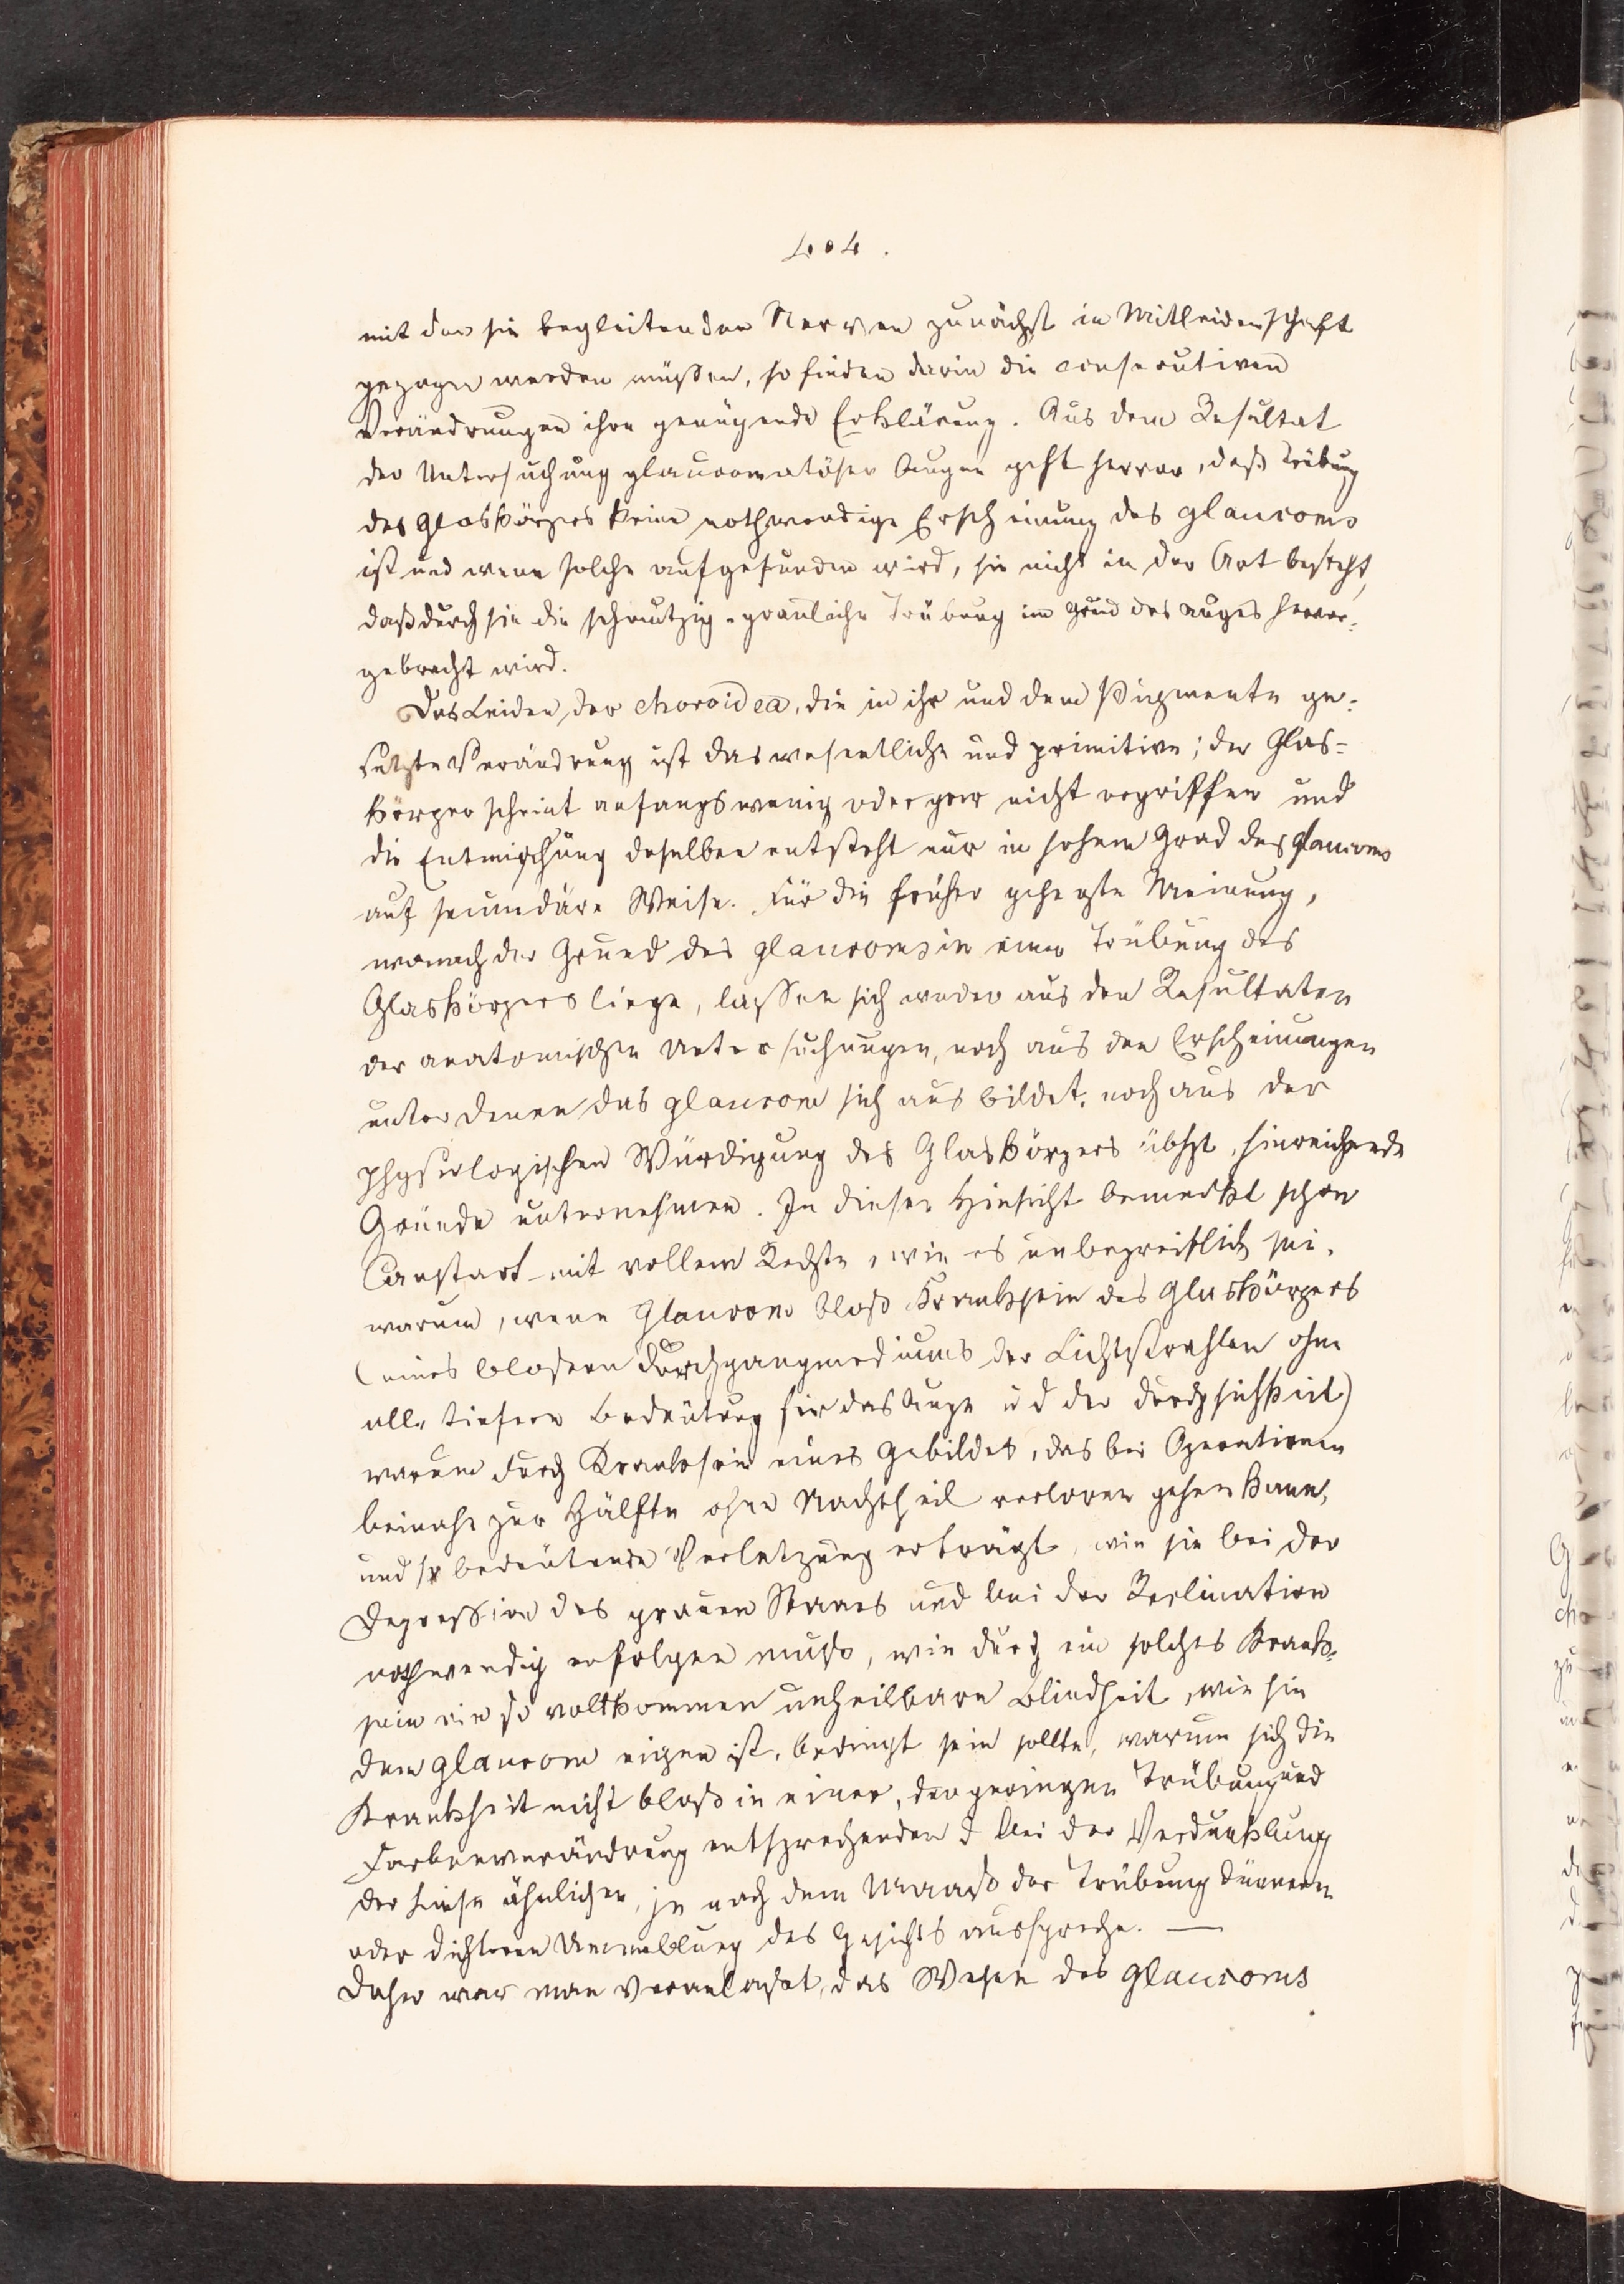 404.
mit den sie begleitenden Nerven zunächst in Mitleidenschaft
gezogen werden müßen, so finden darin die consecutiven
Verändrungen ihre genügende Erklärung. Aus dem Resultat
der Untersuchung glaucomatöser Augen geht hervor, daß Trübung
des Glaskörpers keine nothwendige Erscheinung des Glaucoms
ist und wenn solche aufgefunden wird, sie nicht in der Art besteht,
daß durch sie die schmutzig-grauliche Trübung im Grund des Auges hervor-
gebracht wird.
Das Leiden der choroidea, die in ihr und dem Pigmente ge-
setzte Verändrung ist das wesentliche und primitive; der Glas-
körper scheint anfangs wenig oder gar nicht ergriffen und
die Entmischung deselben entsteht nur in hohem Grad des Glaucoms
auf secundäre Weise. Für die früher gehegte Meinung,
wonach der Grund des Glaucoms in einer Trübung des
Glaskörpers liege, laßen sich weder aus den Resultaten
der anatomischen Untersuchungen, noch aus den Erscheinungen
unter denen das glaucom sich ausbildet, noch aus der
physiologischen Würdigung des Glaskörpers übhpt, hinreichende
Gründe unternehmen. In dieser Hinsicht bemerkt schon
Canstart mit vollem Rechte, wie es unbegreiflich sei,
warum, wenn Glaucom bloß Kranksein des Glaskörpers
(eines bloßen Durchgangmediums der Lichtstrahlen ohne
alle tiefere Bedeutung für das Auge u d der Durchsichtkeit)
warum durch Kranksein eines Gebildes, das bei Operationen
beinahe zur Hälfte ohne Nachtheil verloren gehen kann,
und so bedeutende Verletzung erträgt, wie sie bei der
Depression des grauen Staars und bei der Reclination
nothwendig erfolgen muß, wie durch ein solches Krank-
sein eine so vollkommen unheilbare Blindheit, wie sie
dem Glaucom eigen ist, bedingt sein sollte, warum sich die
Krankheit nicht bloß in einer, der geringen Trübung und
Farbenverändrung entsprechenden d bei der Verdunklung
der Linse ähnlichen, je nach dem Maaß der Trübung dünneren
oder dichteren Umneblung des Gesichts ausspreche. —
Daher war man veranlaßt, das Wesen des Glaucoms